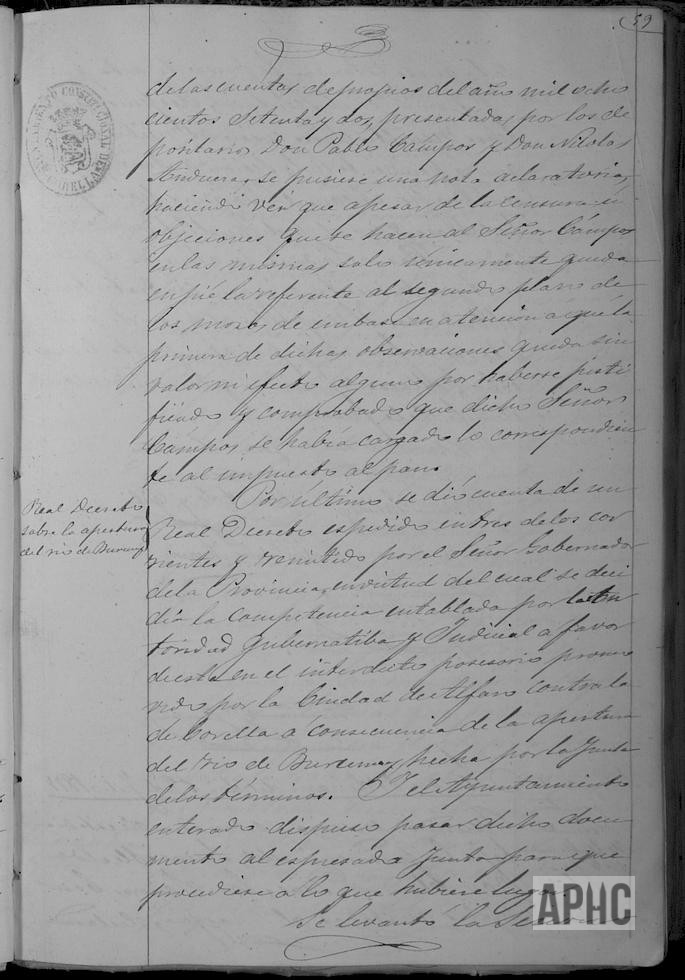 59
de las cuentas de propios del año mil ocho
cientos setenta y dos, presentadas por los de
positarios Don Pablo Campos y Don Nicolas
Anduezar se pusiere una nota aclaratoria,
haciendo ver que apesar de la censura ú
objeciones que se hacen al Señor Cámpos
en las mismas solo únicamente queda
en pié la referente al segundo plazo de
los mozos de embase en atencion a que la
primera de dichas observaciones queda sin
valor ni efecto alguno por haberse justi
ficado y comprobado que dicho Señor
Cámpos se habia cargado lo correspondien
te al impuesto al pan.
Por ultimo se dió cuenta de un
Real Decreto
sobre la apertura
del rio de Burcemay
Real Decreto espedido en tres de los cor
rientes y remitido por el Señor Gobernador
de la Provincia, en virtud del cual se deci
día la competencia entablada por la Au
toridad Gubernatiba y Judicial a favor
de esta en el interdicto posesorio promo
vido por la Ciudad de Alfaro contra la
de Corella á consecuencia de la apertura
del rio de Burcemay hecha por la Junta
de los términos. Y el Ayuntamiento
enterado dispuso pasar dicho docu
mento al espresada Junta para que
procediese a lo que hubiere lugar.
Se levantó la Sesion
APHC